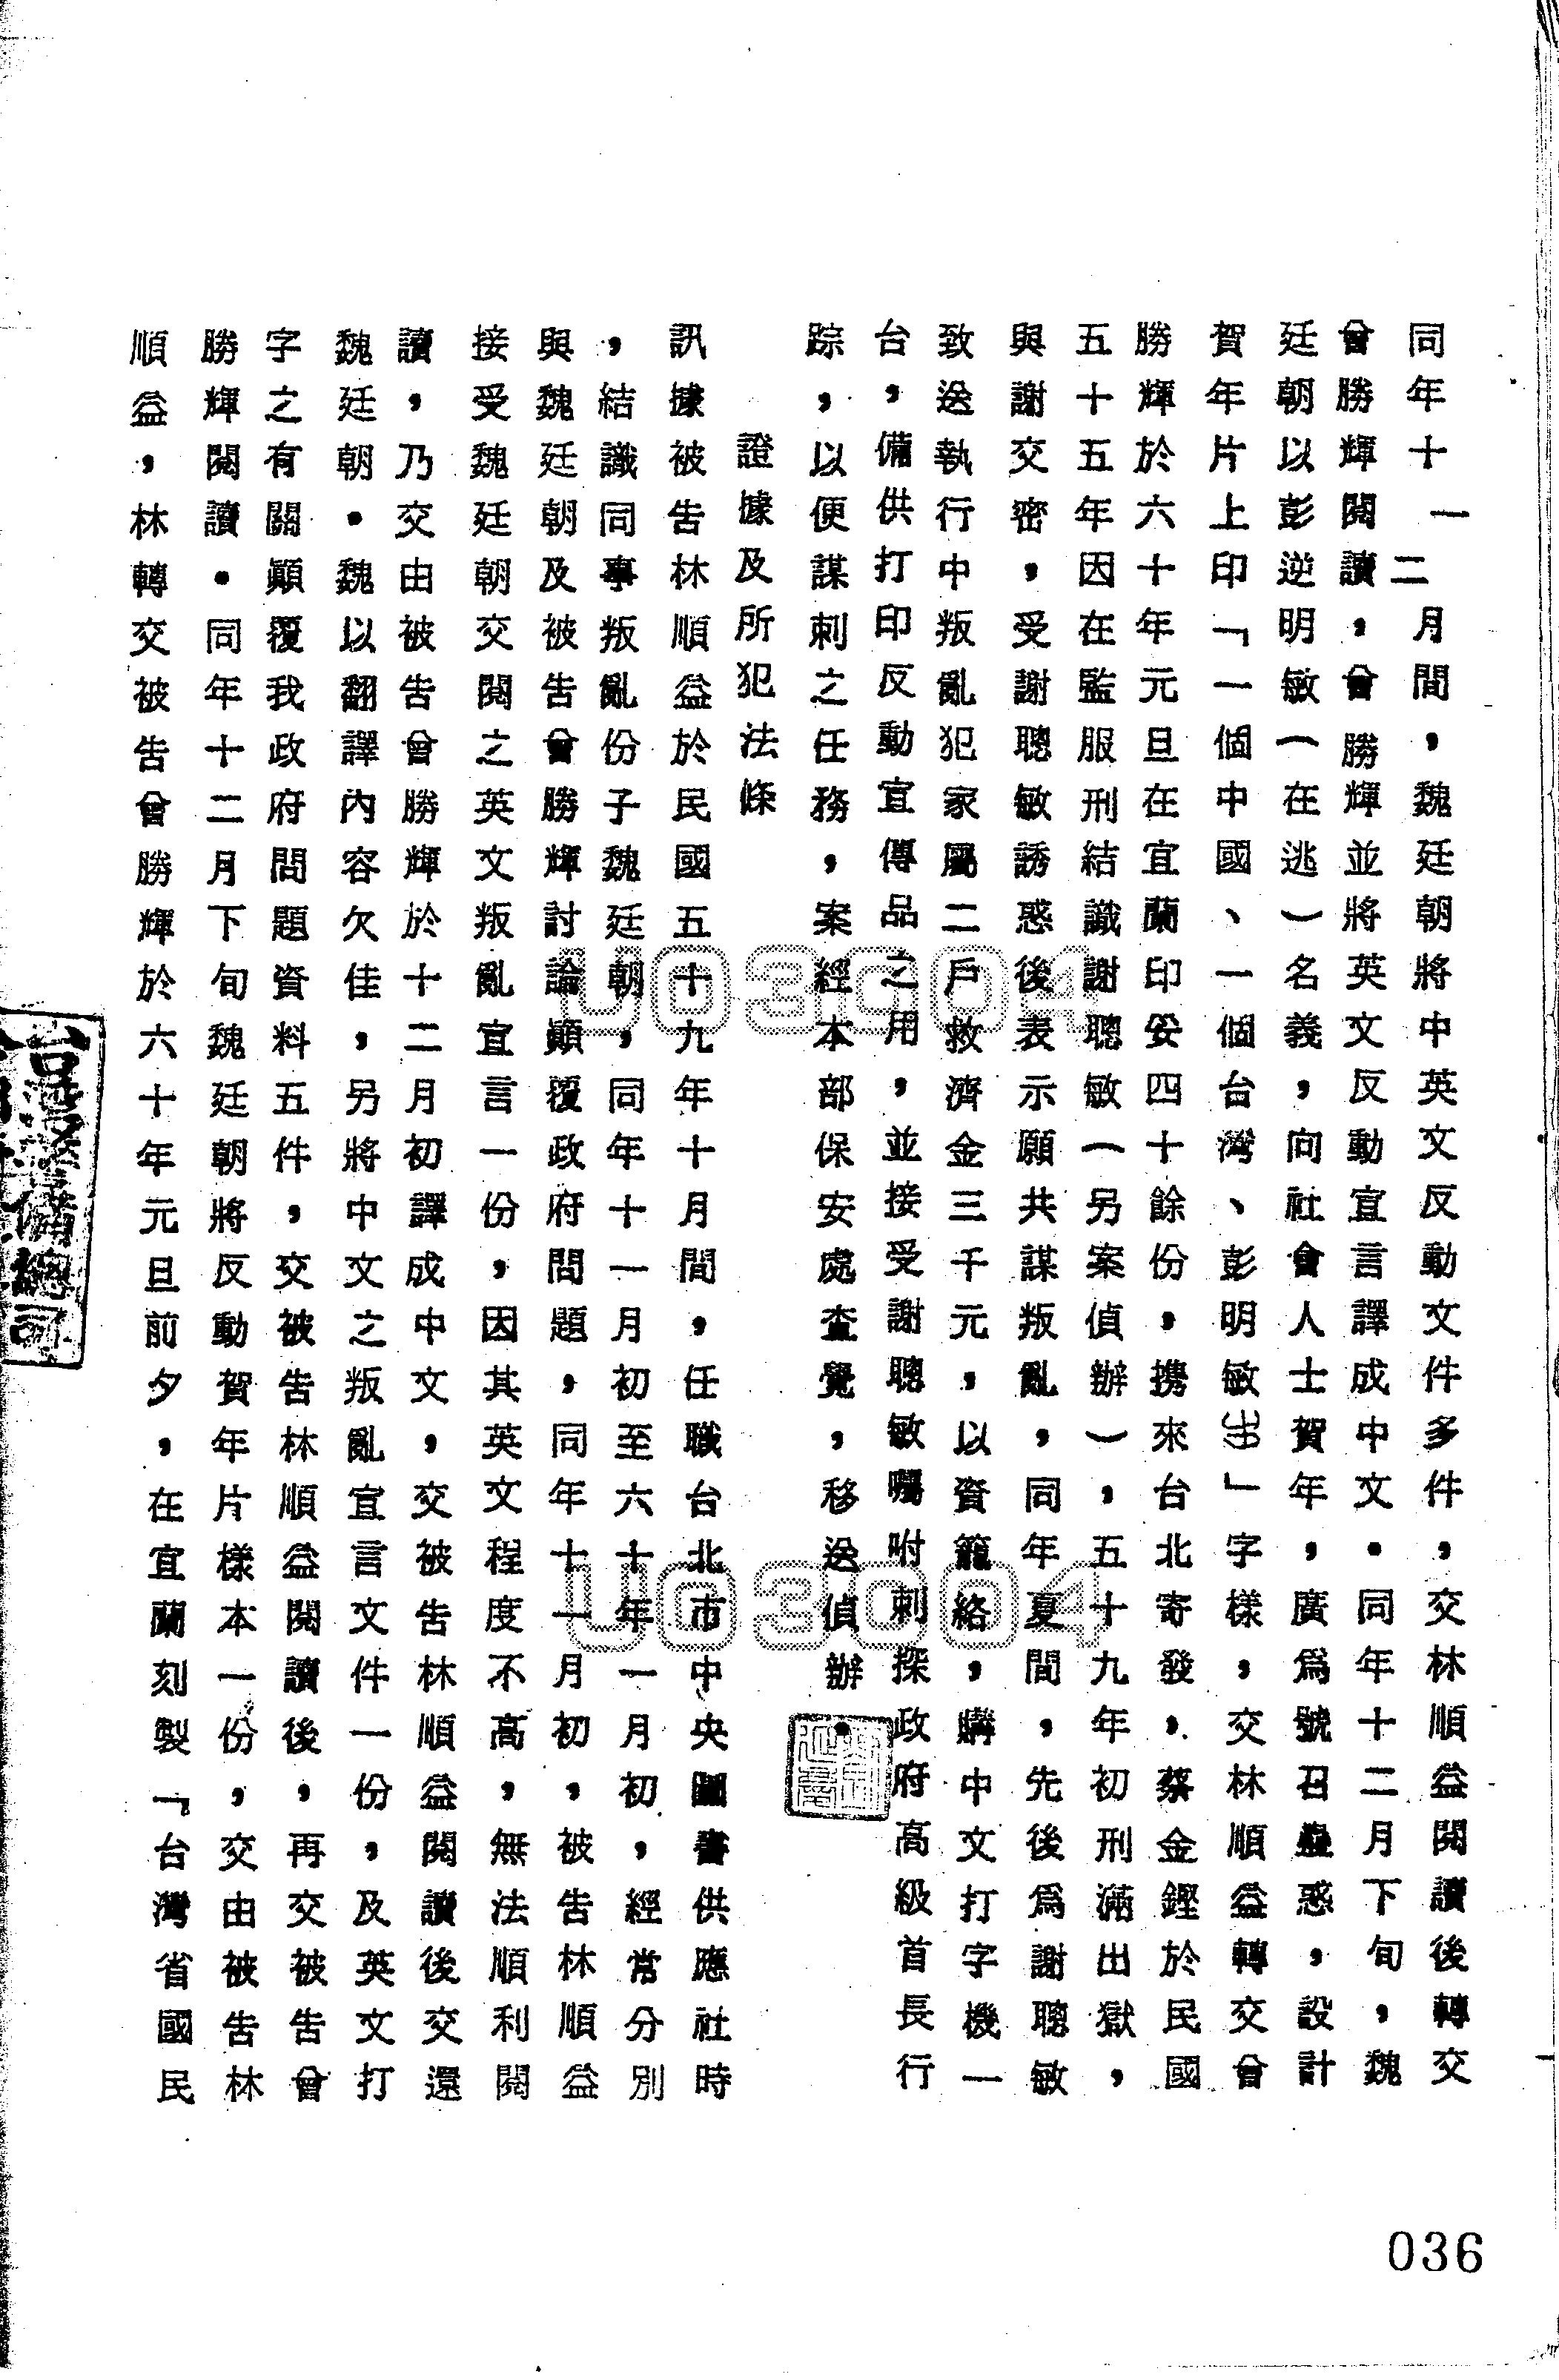 同年十一二月間，魏廷朝將中英文反動文件多件，交林順益閱讀後轉交
曾勝輝閱讀，曾勝輝並將英文反動宣言譯成中文。同年十二月下旬，魏
廷朝以彭逆明敏（在逃）名義，向社會人士賀年，廣為號召蠱惑，設計
賀年片上印「一個中國、一個台灣、彭明敏」字樣，交林順益轉交曾
勝輝於六十年元旦在宜蘭印妥四十餘份，携來台北寄發，蔡金鏗於民國
五十五年因在監服刑結識謝聰敏（另案偵辦），五十九年初刑滿出獄，
與謝交密，受謝聰敏誘惑後表示願共謀叛亂，同年夏間，先後為謝聰敏
致送執行中叛亂犯家屬二戶救濟金三千元，以資籠絡，購中文打字機一
台，備供打印反動宣傳品之用，並接受謝聰敏囑咐刺探政府高級首長行
踪，以便謀刺之任務，案經本部保安處查覺，移送偵辦。
證據及所犯法條
訊據被告林順益於民國五十九年十月間，任職台北市中央圖書供應社時
，結識同事叛亂份子魏廷朝，同年十一月初至六十年一月初，經常分別
與魏廷朝及被告曾勝輝討論顛覆政府問題，同年十一月初，被告林順益
接受魏廷朝交閱之英文叛亂宣言一份，因其英文程度不高，無法順利閱
讀，乃交由被告曾勝輝於十二月初譯成中文，交被告林順益閱讀後交還
魏廷朝。魏以翻譯內容欠佳，另將中文之叛亂宣言文件一份，及英文打
字之有關顛覆我政府問題資料五件，交被告林順益閱讀後，再交被告曾
勝輝閱讀。同年十二月下旬魏廷朝將反動賀年片樣本一份，交由被告林
順益，林轉交被告曾勝輝於六十年元旦前夕，在宜蘭刻製「台灣省國民
台灣警備總司
U03004
U03004
036